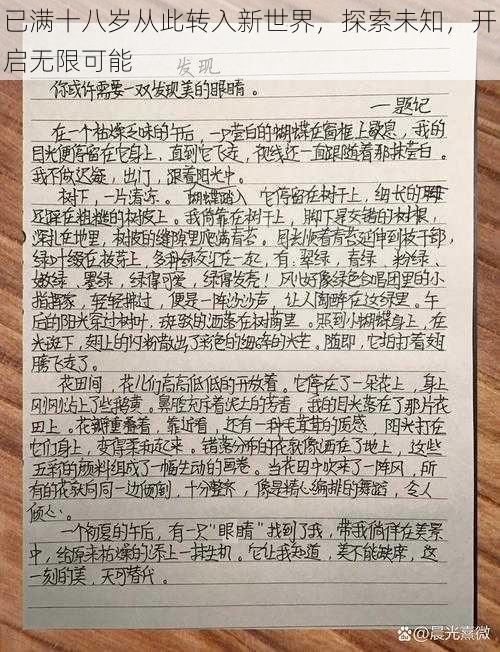 已满十八岁从此转入新世界，探索未知，开
启无限可能
发现
你或许需要一双发现美的眼睛。
——题记
在一个枯燥乏味的午后，一只莹白的蝴蝶在窗框上歇息，我的
目光便停留在它身上，直到它飞走，视线还一直跟随着那抹莹白。
我不做迟疑，出门，跟着阳光中。
树下，一片清凉。蝴蝶踏入，它停留在树干上，细长的脚
还踩在粗糙的树皮上。我倚靠在树干上，脚下是交错的树根，
深扎在地里，树皮的缝隙里爬满青苔。目光顺着青苔延伸到枝干部，
绿叶缀在枝芽上，多种绿交汇在一起，有：翠绿，青绿，粉绿、
嫩绿、墨绿，绿得可爱，绿得发亮！风儿好像绿色合唱团里的小
指挥家，轻轻拂过，便是一阵沙沙声，让人陶醉在这绿里。午
后的阳光穿过树叶，斑驳的洒落在树荫里。照到小蝴蝶身上，在
光斑下，翅上的闪粉散出了彩色的细碎的光芒。随即，它拍打着翅
腾飞走了。
花田间，花儿们高高低低的开放着。它停在了一朵花上，身上
刚刚沾上了些鹅黄。鼻腔充斥着泥土的芳香，我的目光落在了那片花
田上。花瓣重叠着，靠近看，还有一种毛茸茸的质感，阳光打在
它们身上，变得柔和起来。错落分布的花就像洒在了地上，这些
五彩的颜料组成了一幅生动的画卷。当花田中吹来了一阵风，所
有的花就向同一边倾倒，十分整齐，像是精心编排的舞蹈，令人
倾心。
一个初夏的午后，有一只“眼睛”找到了我，带我徜徉在美景
中，给原来枯燥的添上一抹生机。它让我知道，美不能缺席，这
一刻的美，无可替代。
@晨光熹微